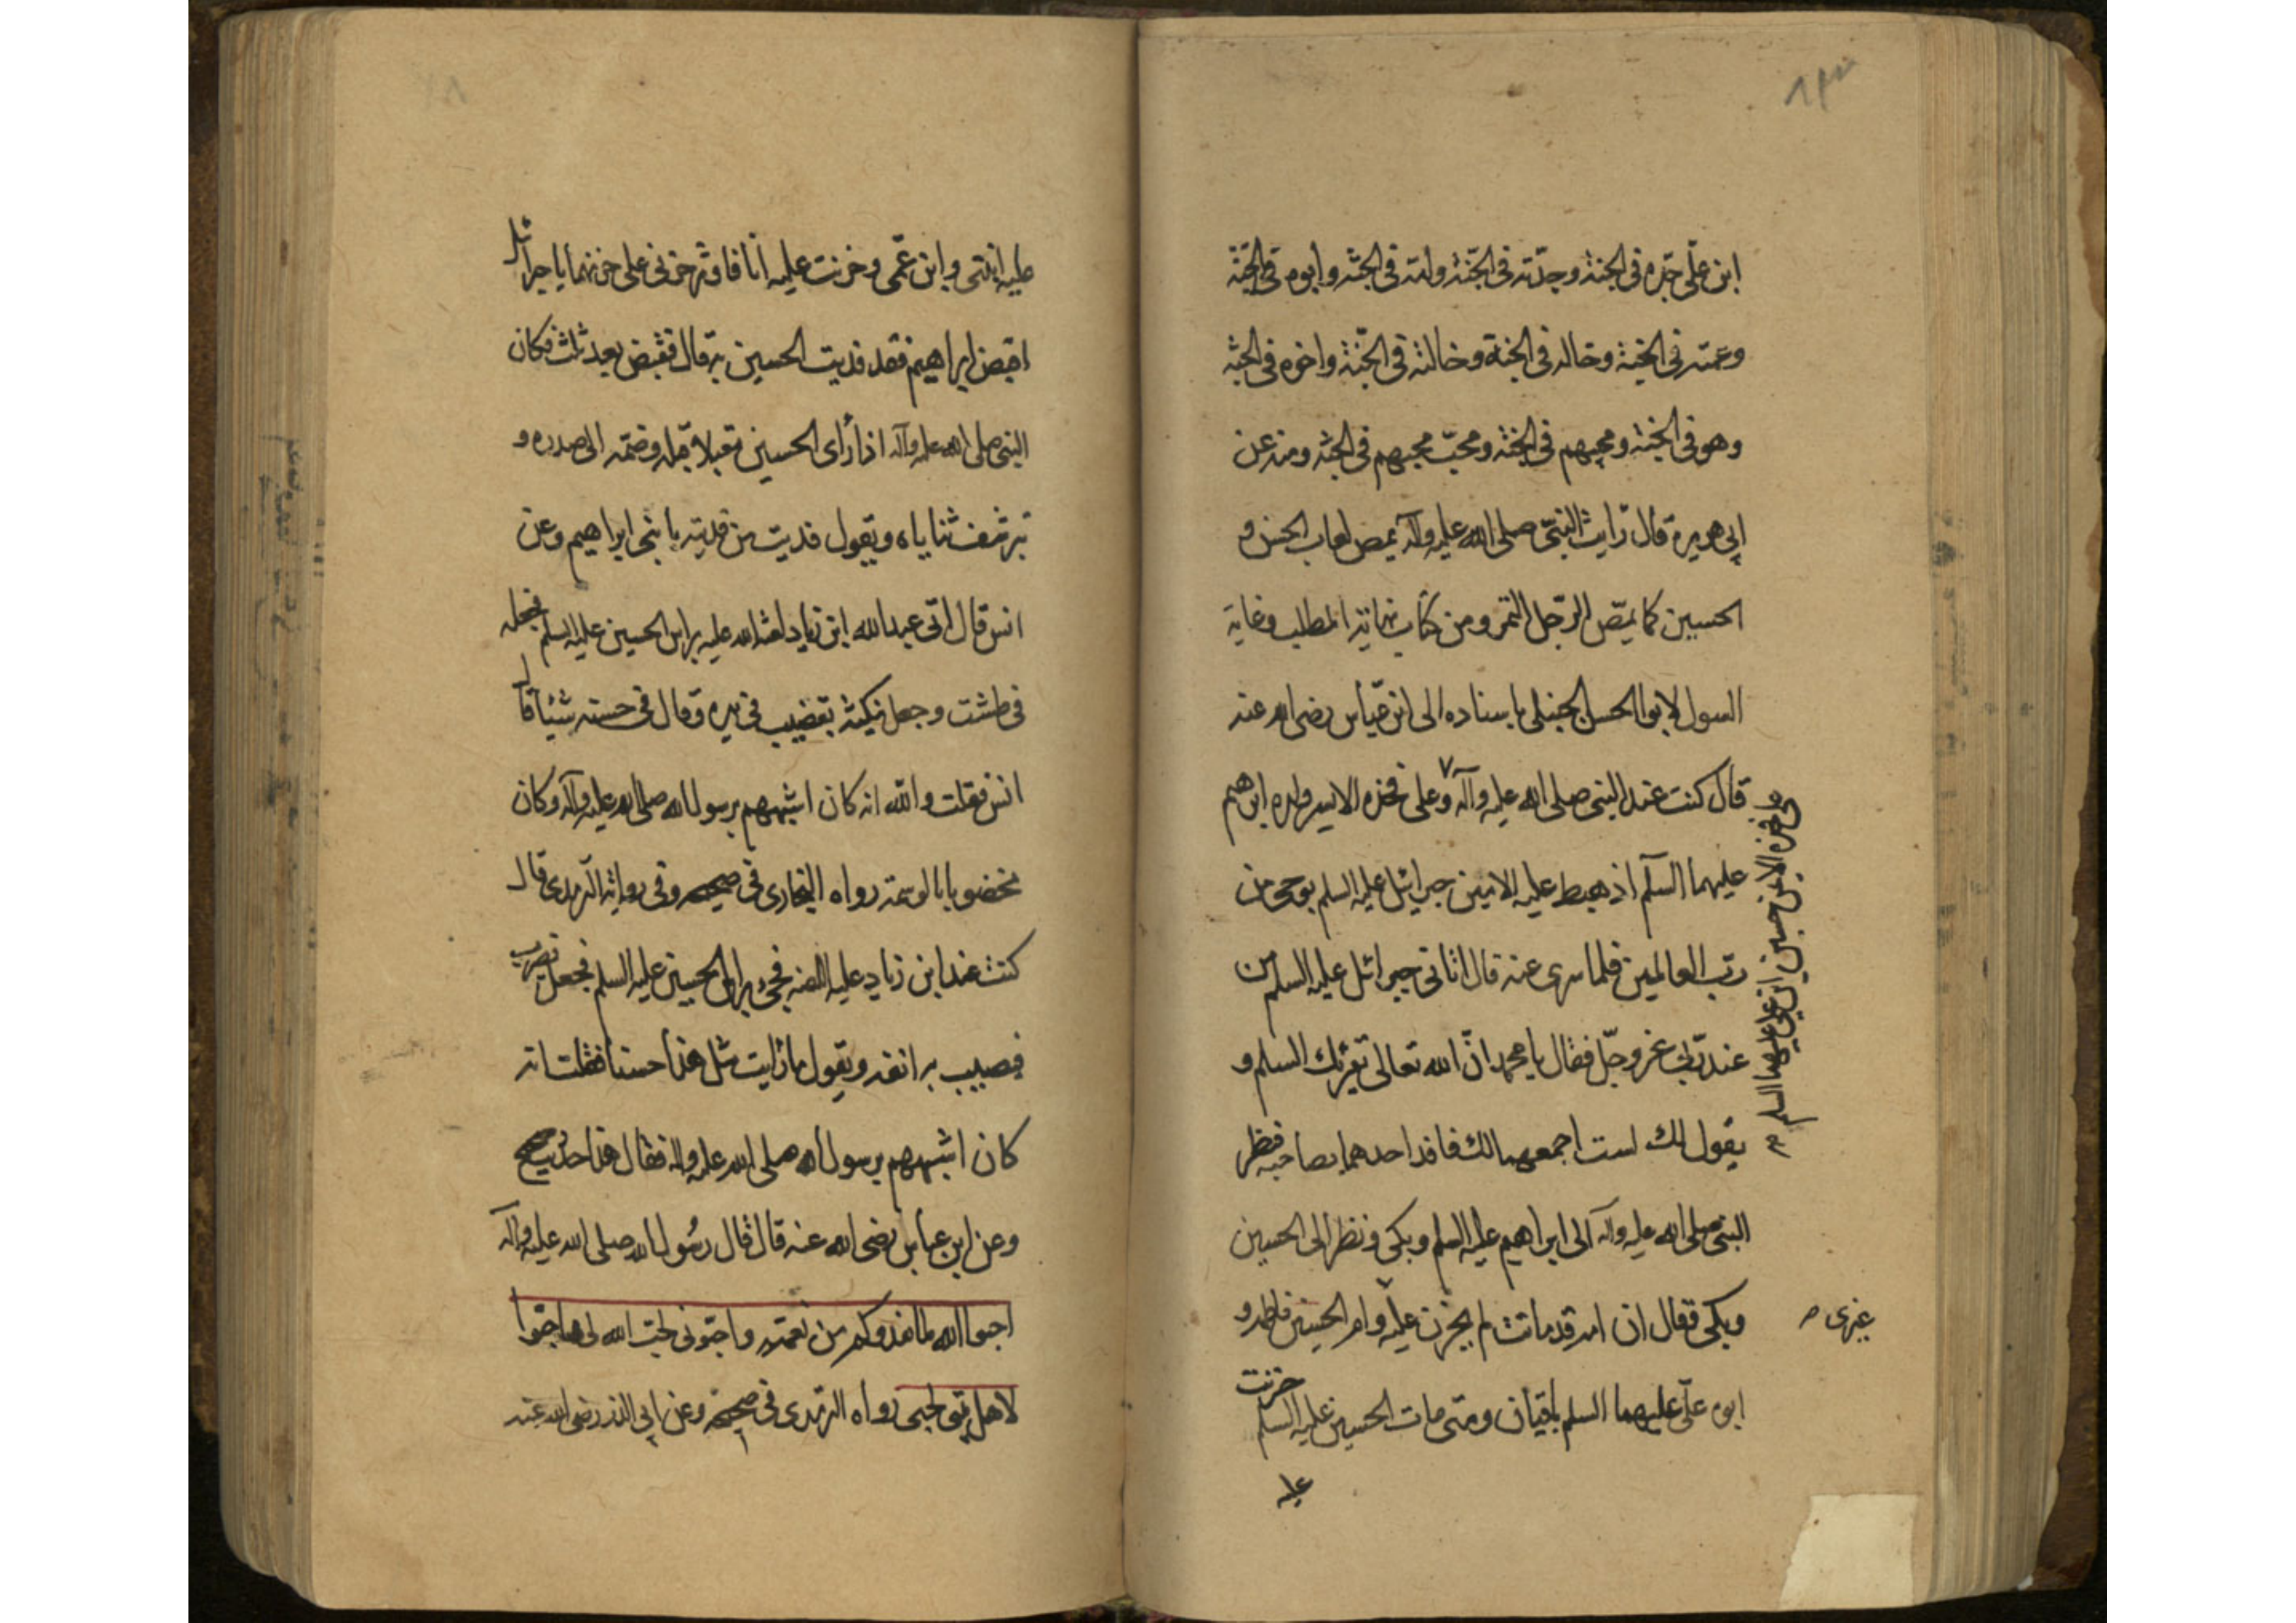 ابن علّي جدّه في الجنة وجدّته في الجنّة وامّه في الجنّة وابوه في الجنّة
وعمّته في الجنة وخاله في الجنة وخالته في الجنّة واخوه في الجنّة
وهو في الجنة ومحبهم في الجنّة ومحبّ محبهم في الجنّة ومنه عن
ابي هريرة قال رايت النبيّ صلى الله عليه وآله يمص لعاب الحسن و
الحسين كما يمصّ الرّجل التمر ومن كتاب نهاية المطلب وغاية
السول لابو الحسن الحنبلي باسناده الى ابن عبّاس رضي الله عنه
قال كنت عند النبي صلى الله عليه وآله وعلى فخذه الايسر ولده ابرهيم
وعلى فخذه الايمن حسين ابن علي عليهما السلم
عليهما السلّم اذ هبط عليه الامين جبرائيل عليه السلم بوحي من
ربّ العالمين فلما سرى عنه قال اتاني جبرائل عليه السلم من
عند ربّي عز وجلّ فقال يا محمد انّ الله تعالى يقرئك السلم و
يقول لك لست اجمعهما لك فافد احدهما بصاحبه فنظر
النبي صلى الله عليه وآله الى ابراهيم عليه السلم وبكى ونظر الى الحسين
وبكى فقال ان امه قد ماتت لم يحزن عليه وام الحسين فاطمه و
غيرى
ابوه علّي عليهما السلم باقيان ومتى مات الحسين عليه السلم حزنت
عليه
عليه ابنتي وابن عمّي وحزنت عليه انا فاوثر حزني على حزنهما يا جبرائل
اقبض ابراهيم فقد فديت الحسين به قال فقبض بعد ثلث فكان
النبي صلى الله عليه وآله اذا رأى الحسين مقبلا قبله وضمّه الى صدره و
ترشف ثناياه ويقول فديت من فديته بابني ابراهيم وعن
انس قال اتى عبد الله ابن زياد لعنه الله عليه براس الحسين عليه السلم فجعله
في طشت وجعل ينكته بقضيب في يده وقال في حسنه شيئا قال
انس فقلت والله انه كان اشبههم برسول الله صلى الله عليه وآله وكان
مخضوبا بالوسمة رواه البخاري في صحيحه وفي رواية الترمدي قال
كنت عند ابن زياد عليه اللعنه فجئ براس الحسين عليه السلم فجعل يضرب
فيصيب به انفه ويقول ما رايت مثل هذا حسنا فقلت انه
كان اشبههم برسول الله صلى الله عليه واله فقال هذا حديث صحيح
وعن ابن عباس رضي الله عنه قال قال رسول الله صلى الله عليه وآله
احبوا الله لما يغدوكم من نعمته واحبّوني لحب الله لي واحبّوا
لاهل بيتي لحبي رواه الترمدي في صحيحه وعن ابي الذر رضي الله عنه